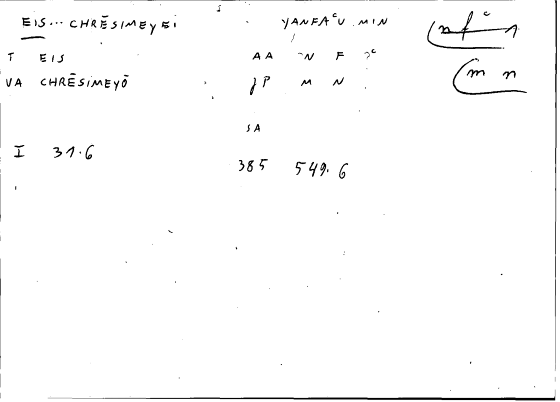 EIS... CHRĒSIMEYEI YANFAʿU MIN
T EIS AA N F ʿ
VA CHRĒSIMEYŌ P M N
m n
SA
I 31.6 385 549.6